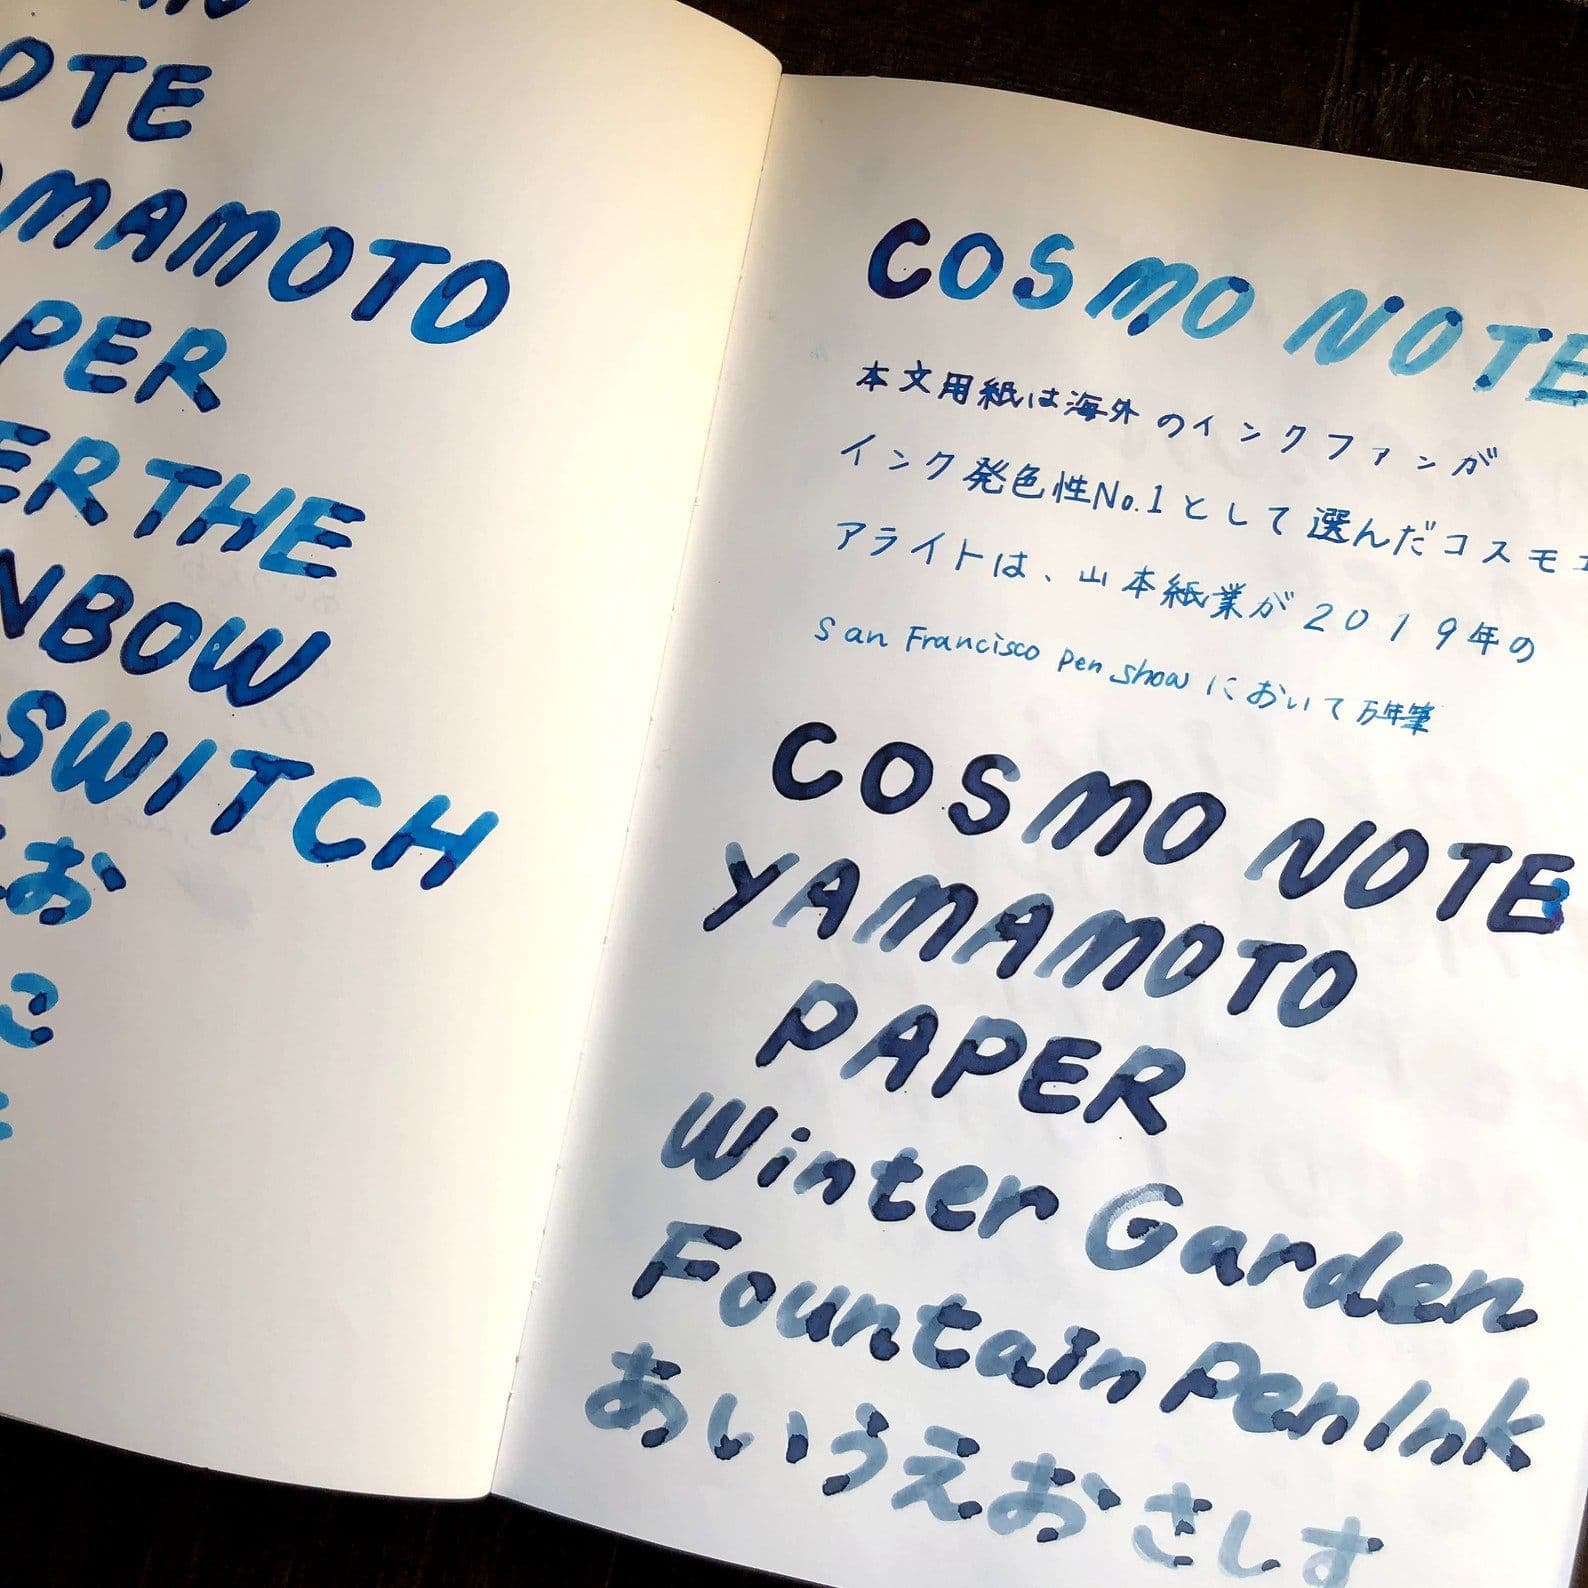 OTE
YAMAMOTO
PER
THE
NBOW
SWITCH
お
こ
COSMO NOTE
本文用紙は海外のインクファンが
インク発色性No.1として選んだコスモエ
アライトは、山本紙業が2019年の
San Francisco pen showにおいて万年筆
COSMO NOTE
YAMAMOTO
PAPER
Winter Garden
Fountain Pen Ink
あいうえおさしす